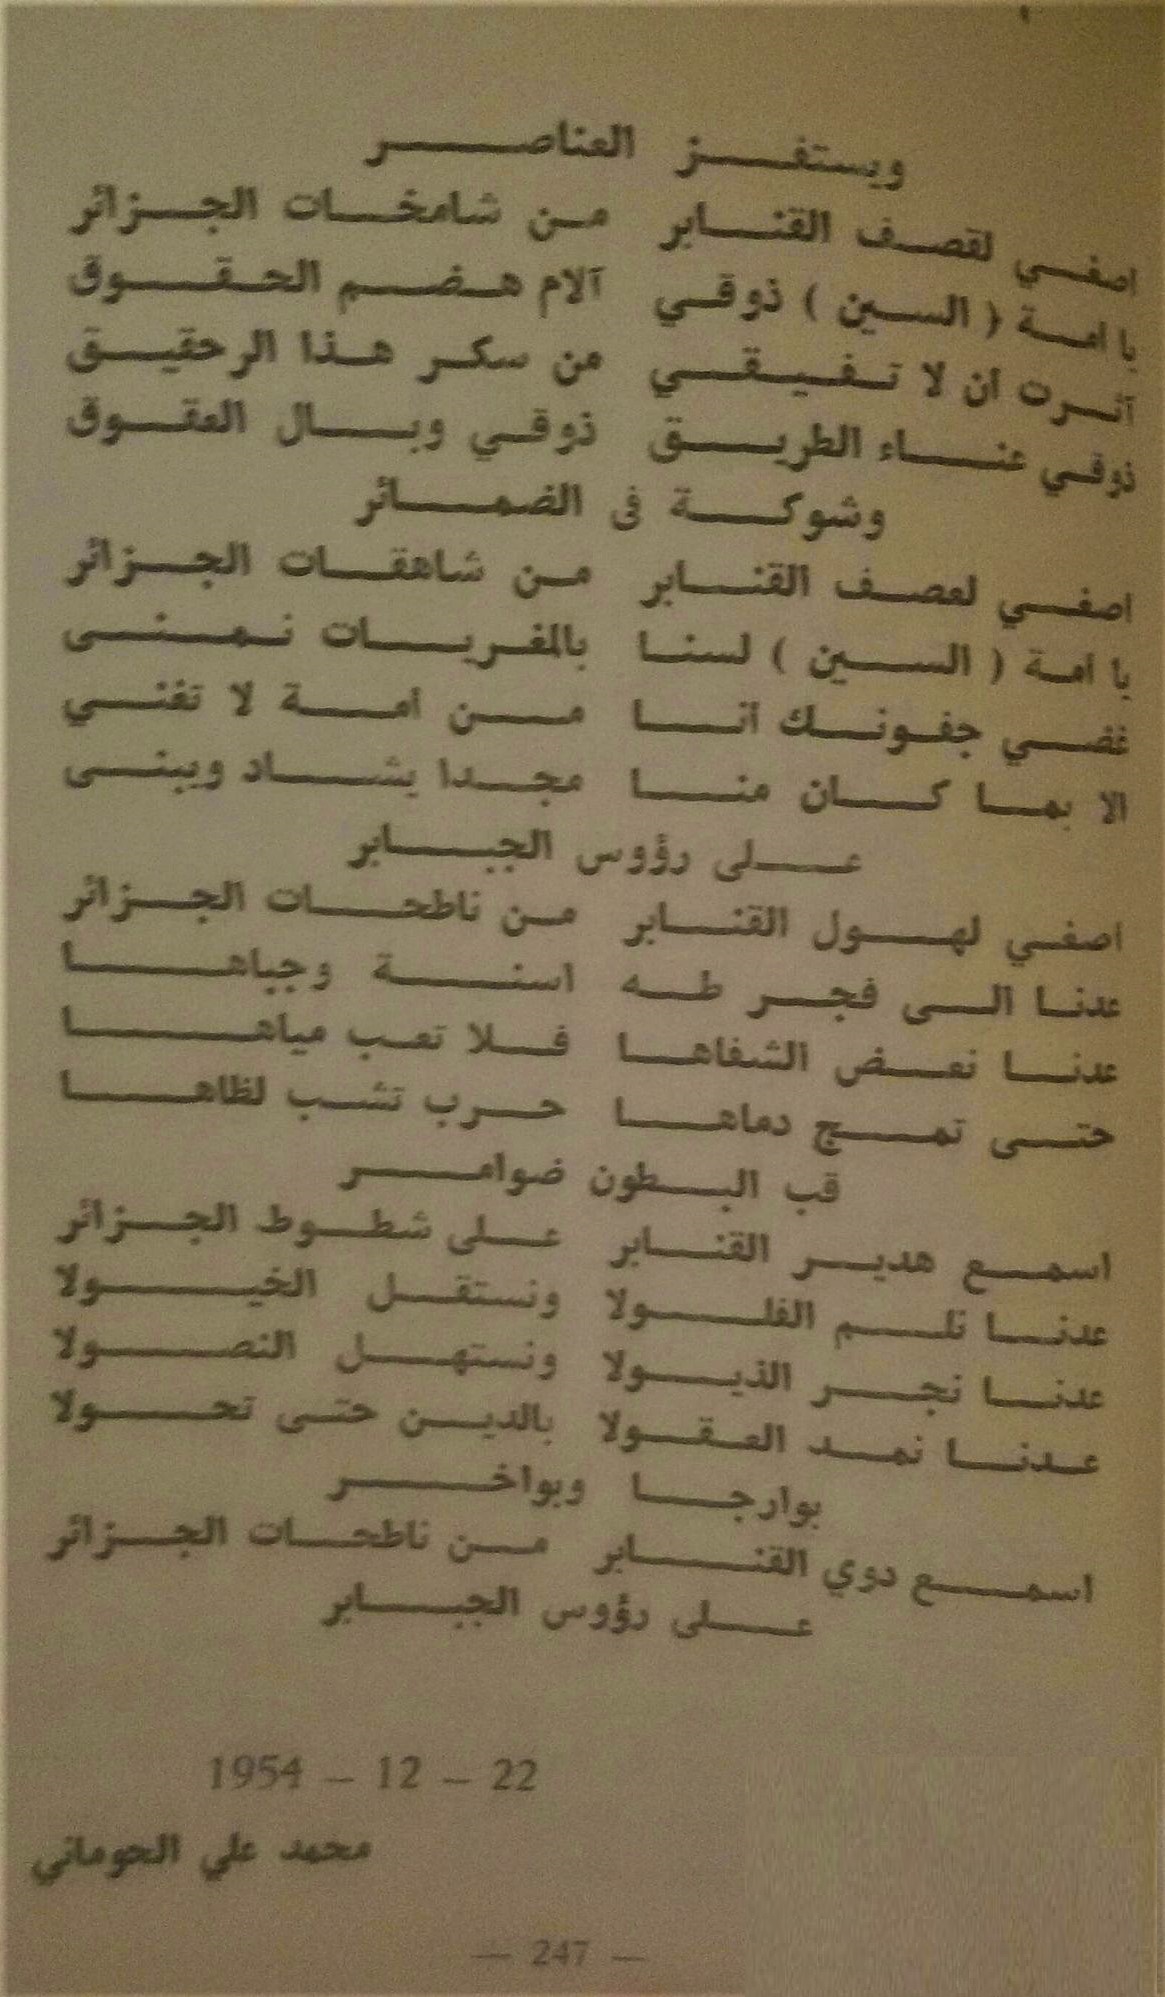 ويستفز العناصر
اصغي لقصف القنابر من شامخات الجزائر
يا امة ( السين ) ذوقي آلام هضم الحقوق
آثرت ان لا تفيقي من سكر هذا الرحقيق
ذوقي عناء الطريق ذوقي وبال العقوق
وشوكة في الضمائر
اصغي لعصف القنابر من شاهقات الجزائر
يا امة ( السين ) لسنا بالمغريات نمنى
غضي جفونك انا من امة لا تغني
الا بما كان منا مجدا يشاد ويبنى
على رؤوس الجبابر
اصغي لهول القنابر من ناطحات الجزائر
عدنا الى فجر طه اسنة وجباها
عدنا نعض الشفاها فلا تعب مياها
حتى تمج دماها حرب تشب لظاها
قب البطون ضوامر
اسمع هدير القنابر على شطوط الجزائر
عدنا نلم الفلولا ونستقل الخيولا
عدنا نجر الذيولا ونستهل النصولا
عدنا نمد العقولا بالدين حتى تحولا
بوارجا وبواخر
اسمع دوي القنابر من ناطحات الجزائر
على رؤوس الجبابر
22 – 12 – 1954
محمد علي الحوماني
— 247 —